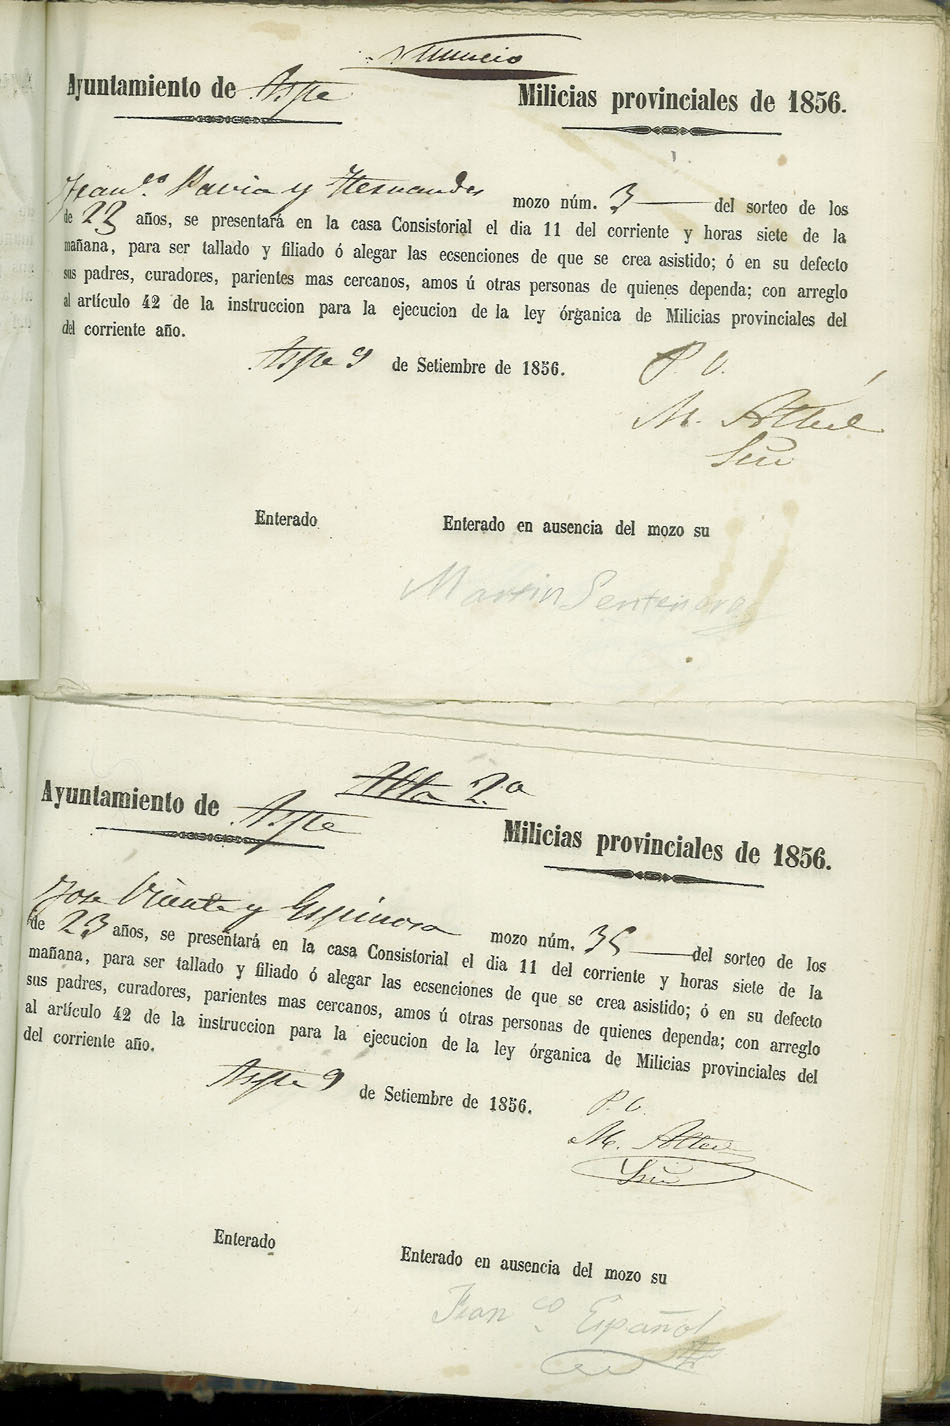 Ayuntamiento de Aspe
Milicias provinciales de 1856.
Fran.co Pavia y Hernandes mozo núm. 3 del sorteo de los
de 23 años, se presentará en la casa Consistorial el dia 11 del corriente y horas siete de la
mañana, para ser tallado y filiado ó alegar las ecsenciones de que se crea asistido; ó en su defecto
sus padres, curadores, parientes mas cercanos, amos ú otras personas de quienes dependa; con arreglo
al artículo 42 de la instruccion para la ejecucion de la ley órganica de Milicias provinciales del
del corriente año.
Aspe 9 de Setiembre de 1856.
P. O.
M.
Enterado
Enterado en ausencia del mozo su
Martin Sentenera
Alta 2.a
Ayuntamiento de Aspe
Milicias provinciales de 1856.
Jose Vicente y Espinosa mozo núm. 35 del sorteo de los
de 23 años, se presentará en la casa Consistorial el dia 11 del corriente y horas siete de la
mañana, para ser tallado y filiado ó alegar las ecsenciones de que se crea asistido; ó en su defecto
sus padres, curadores, parientes mas cercanos, amos ú otras personas de quienes dependa; con arreglo
al artículo 42 de la instruccion para la ejecucion de la ley órganica de Milicias provinciales del
del corriente año.
Aspe 9 de Setiembre de 1856.
P. O.
M.
Enterado
Enterado en ausencia del mozo su
Fran co Español